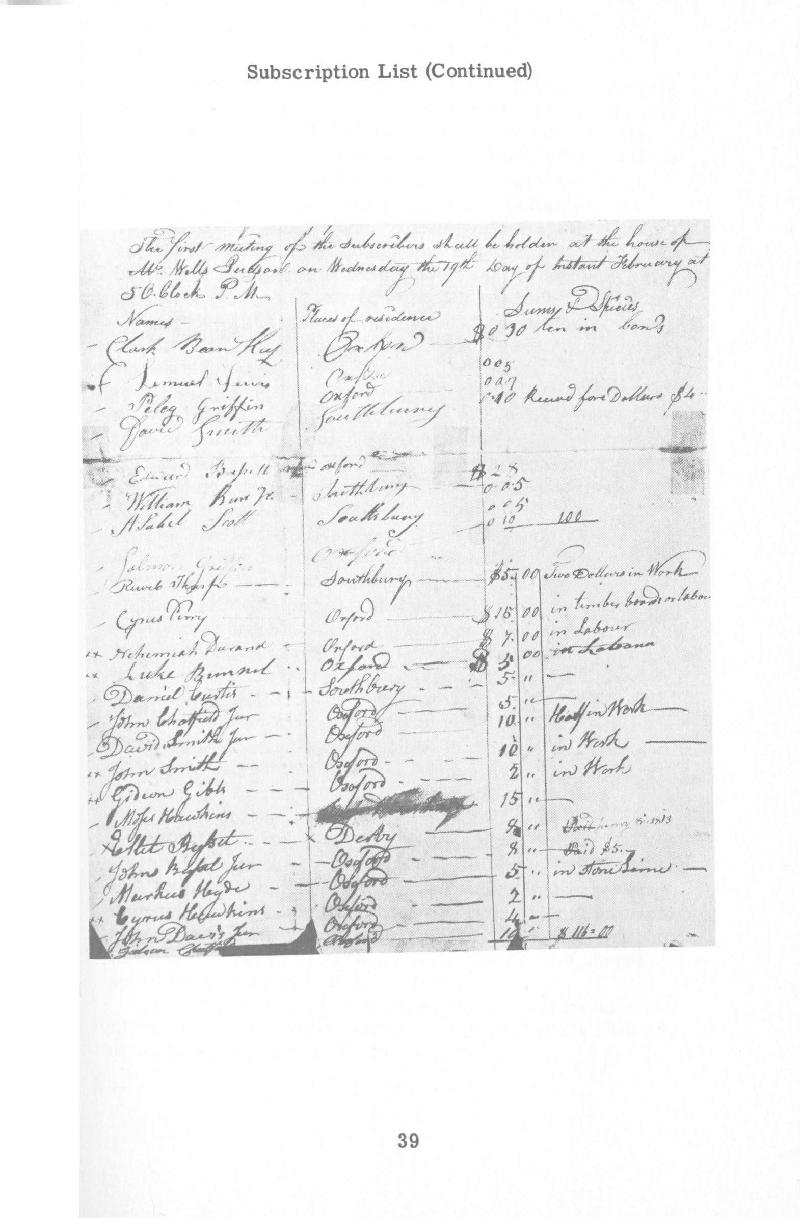 Subscription List (Continued)
The first meeting of the subscribers shall be holden at the house of
Mr. Wells on Wednesday the 19th Day of Instant February at
5 O. Clock P. M.
Names Places of residence Sums & Species
Clark Oxford $0 30 ten in
Lemuel Lewis Oxford 0 05
Peleg Griffin Oxford
David Smith Southbury 0 40 four Dollars $4
Edward Oxford $ 28
William Jr. Southbury 0 05
Asahel Scott Southbury 0 05
0 10 100
Salmon Griffin Oxford
Southbury $5. 00 Two Dollars in Work
Cyrus Perry Oxford $15 00 in timber boards or labour
Nehemiah Durand Oxford $ 7. 00 in Labour
Luke Oxford $ 5 00 in
Daniel Curtis Southbury 5 "
John Chatfield Jur Oxford 5. "
David Smith Jur Oxford 10 " Half in Work
John Smith Oxford 10 " in Work
Gideon Gibbs Oxford 2 " in Work
Moses Hawkins 15 "
Derby 8 "
John Jur Oxford 8 " Paid $5.
Markus Hyde Oxford 5 " in Stone Lime
Cyrus Hawkins Oxford 2 "
John Davis Jur Oxford 4 "
Oxford 10 " $ 116=00
39